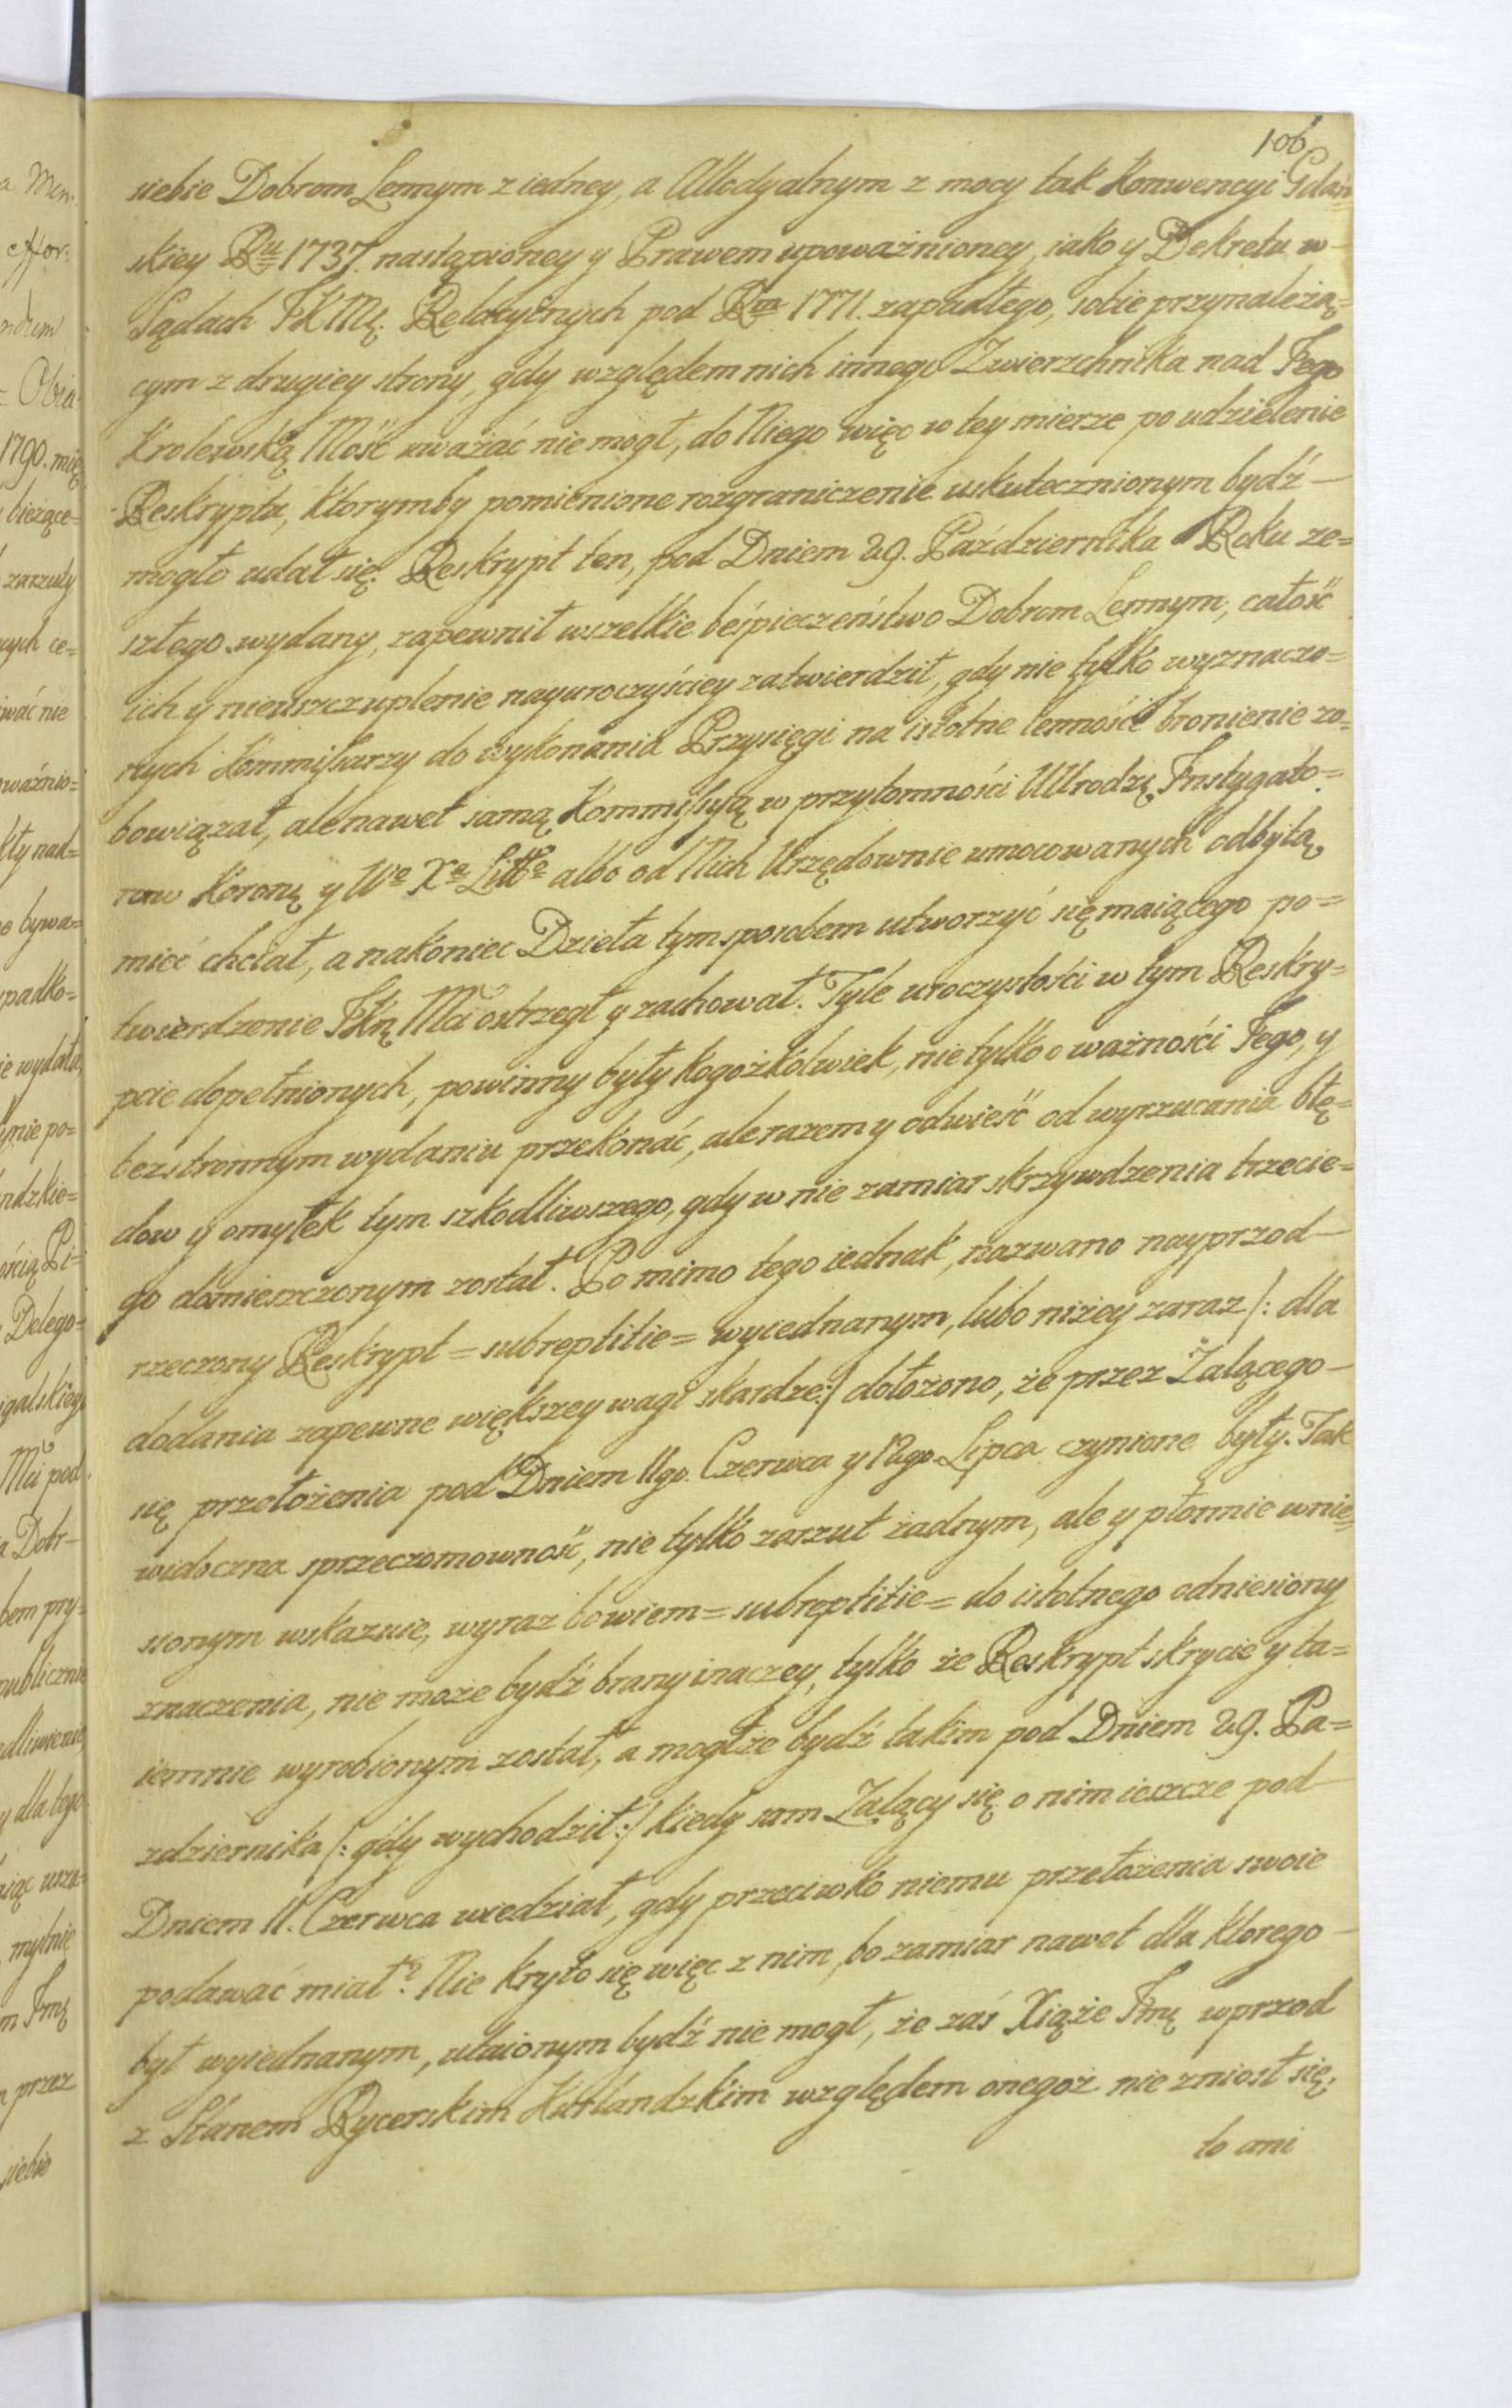 106
siebie Dobrom Lennym z iedney, a Allodyalnym z mocy tak Konwencyi Gdań=
skiey Ru 1737. nastąpioney y Prawem upoważnioney, iako y Dekretu w
Sądach JKMę. Relacyinych pod Rm 1771. zapadłego, sobie przynależą=
cym z drugiey strony, gdy względem nich innego Zwierzchnika nad Jego
Krolewską Mość uważać nie mogł, do Niego więc w tey mierze po udzielenie
Reskryptu, ktorymby pomienione rozgraniczenie uskutecznionym bydź —
mogło udał się. Reskrypt ten, pod Dniem 29. Października Roku ze=
szłego wydany, zapewnił wszelkie beśpieczeństwo Dobrom Lennym, całość
ich y nieuszczuplenie nayuroczyściey zatwierdził, gdy nie tylko wyznaczo=
nych Kommissarzy do wykonania Przysięgi na istotne lenność bronienie zo=
bowiązał, ale nawet samą Kommissyą w przytomności UUrodzę Instygato=
row Koronę y Wo Xa Litto albo od Nich Urzędownie umocowanych odbytą,
mieć chciał, a nakoniec Dzieła tym sposobem utworzyć się maiącego po=
twierdzenie JKę Mci ostrzegł y zachował. Tyle uroczystości w tym Reskry=
pcie dopełnionych, powinny były kogożkolwiek, nie tylko o ważności Jego, y
bezstronnym wydaniu przekonać, ale razem y odwieść od wyrzucania błę=
dow y omyłek tym szkodliwszego, gdy w nie zamiar skrzywdzenia trzecie=
go domieszczonym został. Po mimo tego iednak, nazwano nayprzod —
rzeczony Reskrypt = subreptitie = wyiednanym, lubo niżey zaraz /: dla
dodania zapewne większey wagi skardze :/ dołożono, że przez Żalącego —
się przełożenia pod Dniem 11go. Czerwca y 12go Lipca czynione były. Tak
widoczna sprzeczomowność, nie tylko zarzut żadnym, ale y płonnie wnie=
sionym wskazuie, wyraz bowiem = subreptitie = do istotnego odniesiony
znaczenia, nie może bydź brany inaczey, tylko że Reskrypt skrycie y ta=
iemnie wyrobionym został, a mogłże bydź takim pod Dniem 29. Pa=
zdziernika /: gdy wychodził :/ kiedy sam Żalący się o nim ieszcze pod
Dniem 11. Czerwca wiedział, gdy przeciwko niemu przełożenia swoie
podawać miał? Nie kryło się więc z nim, bo zamiar nawet dla ktorego —
był wyiednanym, utaionym bydź nie mogł, że zaś Xiąże Jmę wprzod
z Stanem Rycerskim Kurlandzkim względem onegoż nie zniosł się,
to ani